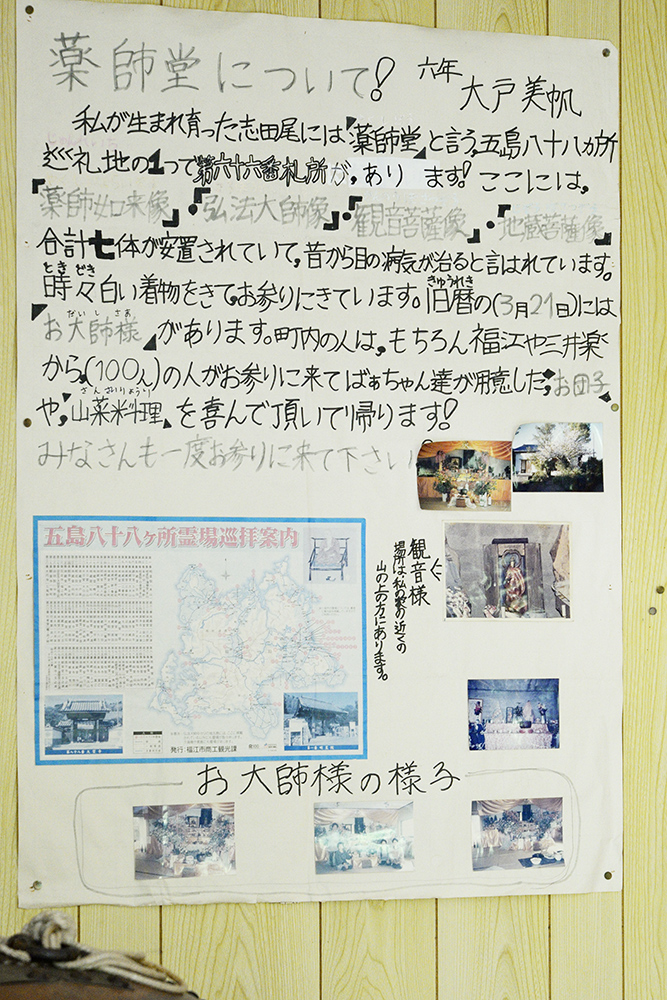 薬師堂について!
六年 大戸美帆
私が生まれ育った志田尾には「薬師堂」と言う、五島八十八カ所
巡礼地の1つで第六十六番札所が、あり ます!ここには、
「薬師如来像」・「弘法大師像」・「観音菩薩像」・「地蔵菩薩像」
合計七体が安置されていて、昔から目の病気が治ると言はれています。
ときどき
時々白い着物をきてお参りにきています。旧暦の(3月21日)には
きゅうれき
だいしさあ
「お大師様」があります。町内の人は、もちろん福江や三井楽
から、(100人)の人がお参りに来てばぁちゃん達が用意した、「お団子」
さんさいりょうり
や、「山菜料理」を喜んで頂いて帰ります!
みなさんも一度お参りに来て下さい!
五島八十八ヶ所霊場巡拝案内
発行:福江市商工観光課
観音様
場所は私の家の近くの
山の上の方にあります。
お大師様の様子